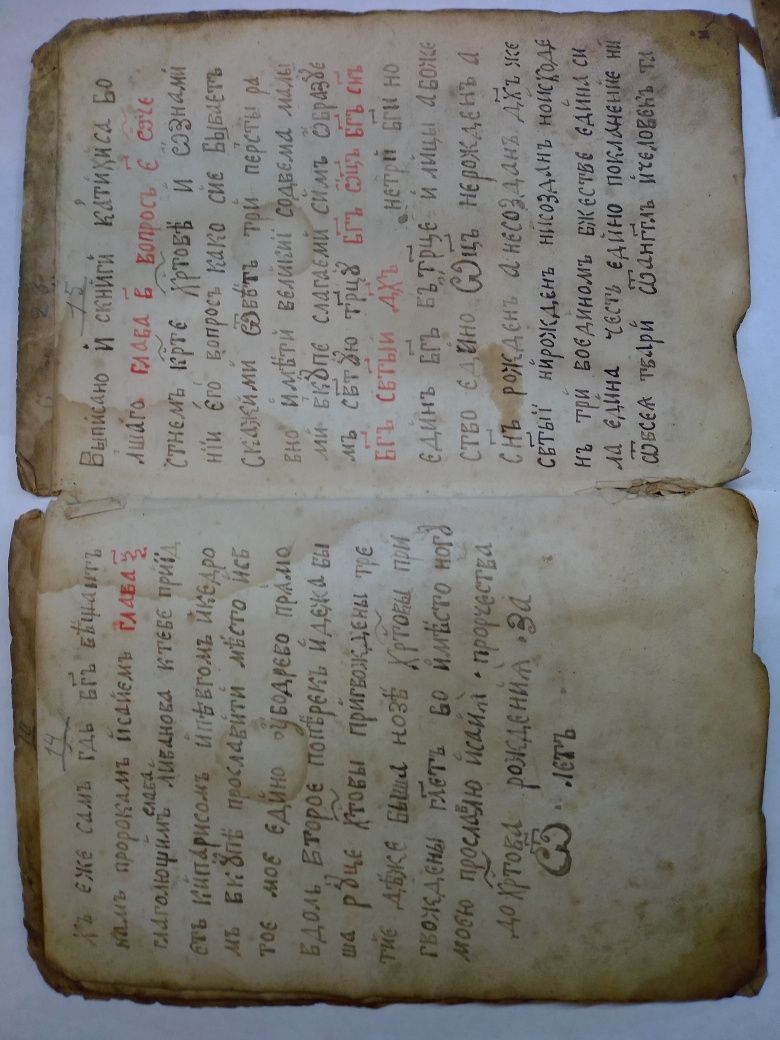 14
къ еже самъ гдь бгъ вѣщаетъ
намъ пророкамъ исаиемъ глава ѯ҃
слава
глаголющимъ ливанова ктебе прїид
етъ кипарисомъ ипѣвгомъ икедро
мъ вкȣпѣ прославити мѣсто мсв
тое мое едино ѹбодрево прѧмо
вдоль второе поперекъ идежа бы
ша рȣце хтовы пригвождены тре
тие дѣже быша нозѣ хртовы при
гвождены глетъ бо имѣсто ногȣ
моею прославлю исаиꙗ · прорчества
до хртова рождениꙗ · за
ѿ · летъ
15
Выписано и скниги катихиса бо
лшаго глава в҃ вопросъ є҃ ѡче
стнемъ крте хртовѣ и ѡзнами
нии его вопросъ како сие бываетъ
Скажими ѿвѣтъ три персты ра
вно имѣти великии содвема малы
ми вкȣпе слагаеми симъ ѡбразȣе
мъ свтȣю трцȣ бгъ ѡцъ бгъ снъ
бгъ свтыи дхъ нетри бги но
единъ бгъ вътрце и лицы абоже
ство едино ѿцъ нерожденъ а
снъ рожденъ анесозданъ дхъ же
свтыи нирожденъ нисозданъ ноисходе
нъ три воединомъ бжестве едина си
ла едина честь едино покланение ни
ѿвсеѧ твари ѿангглъ ичеловекъ та